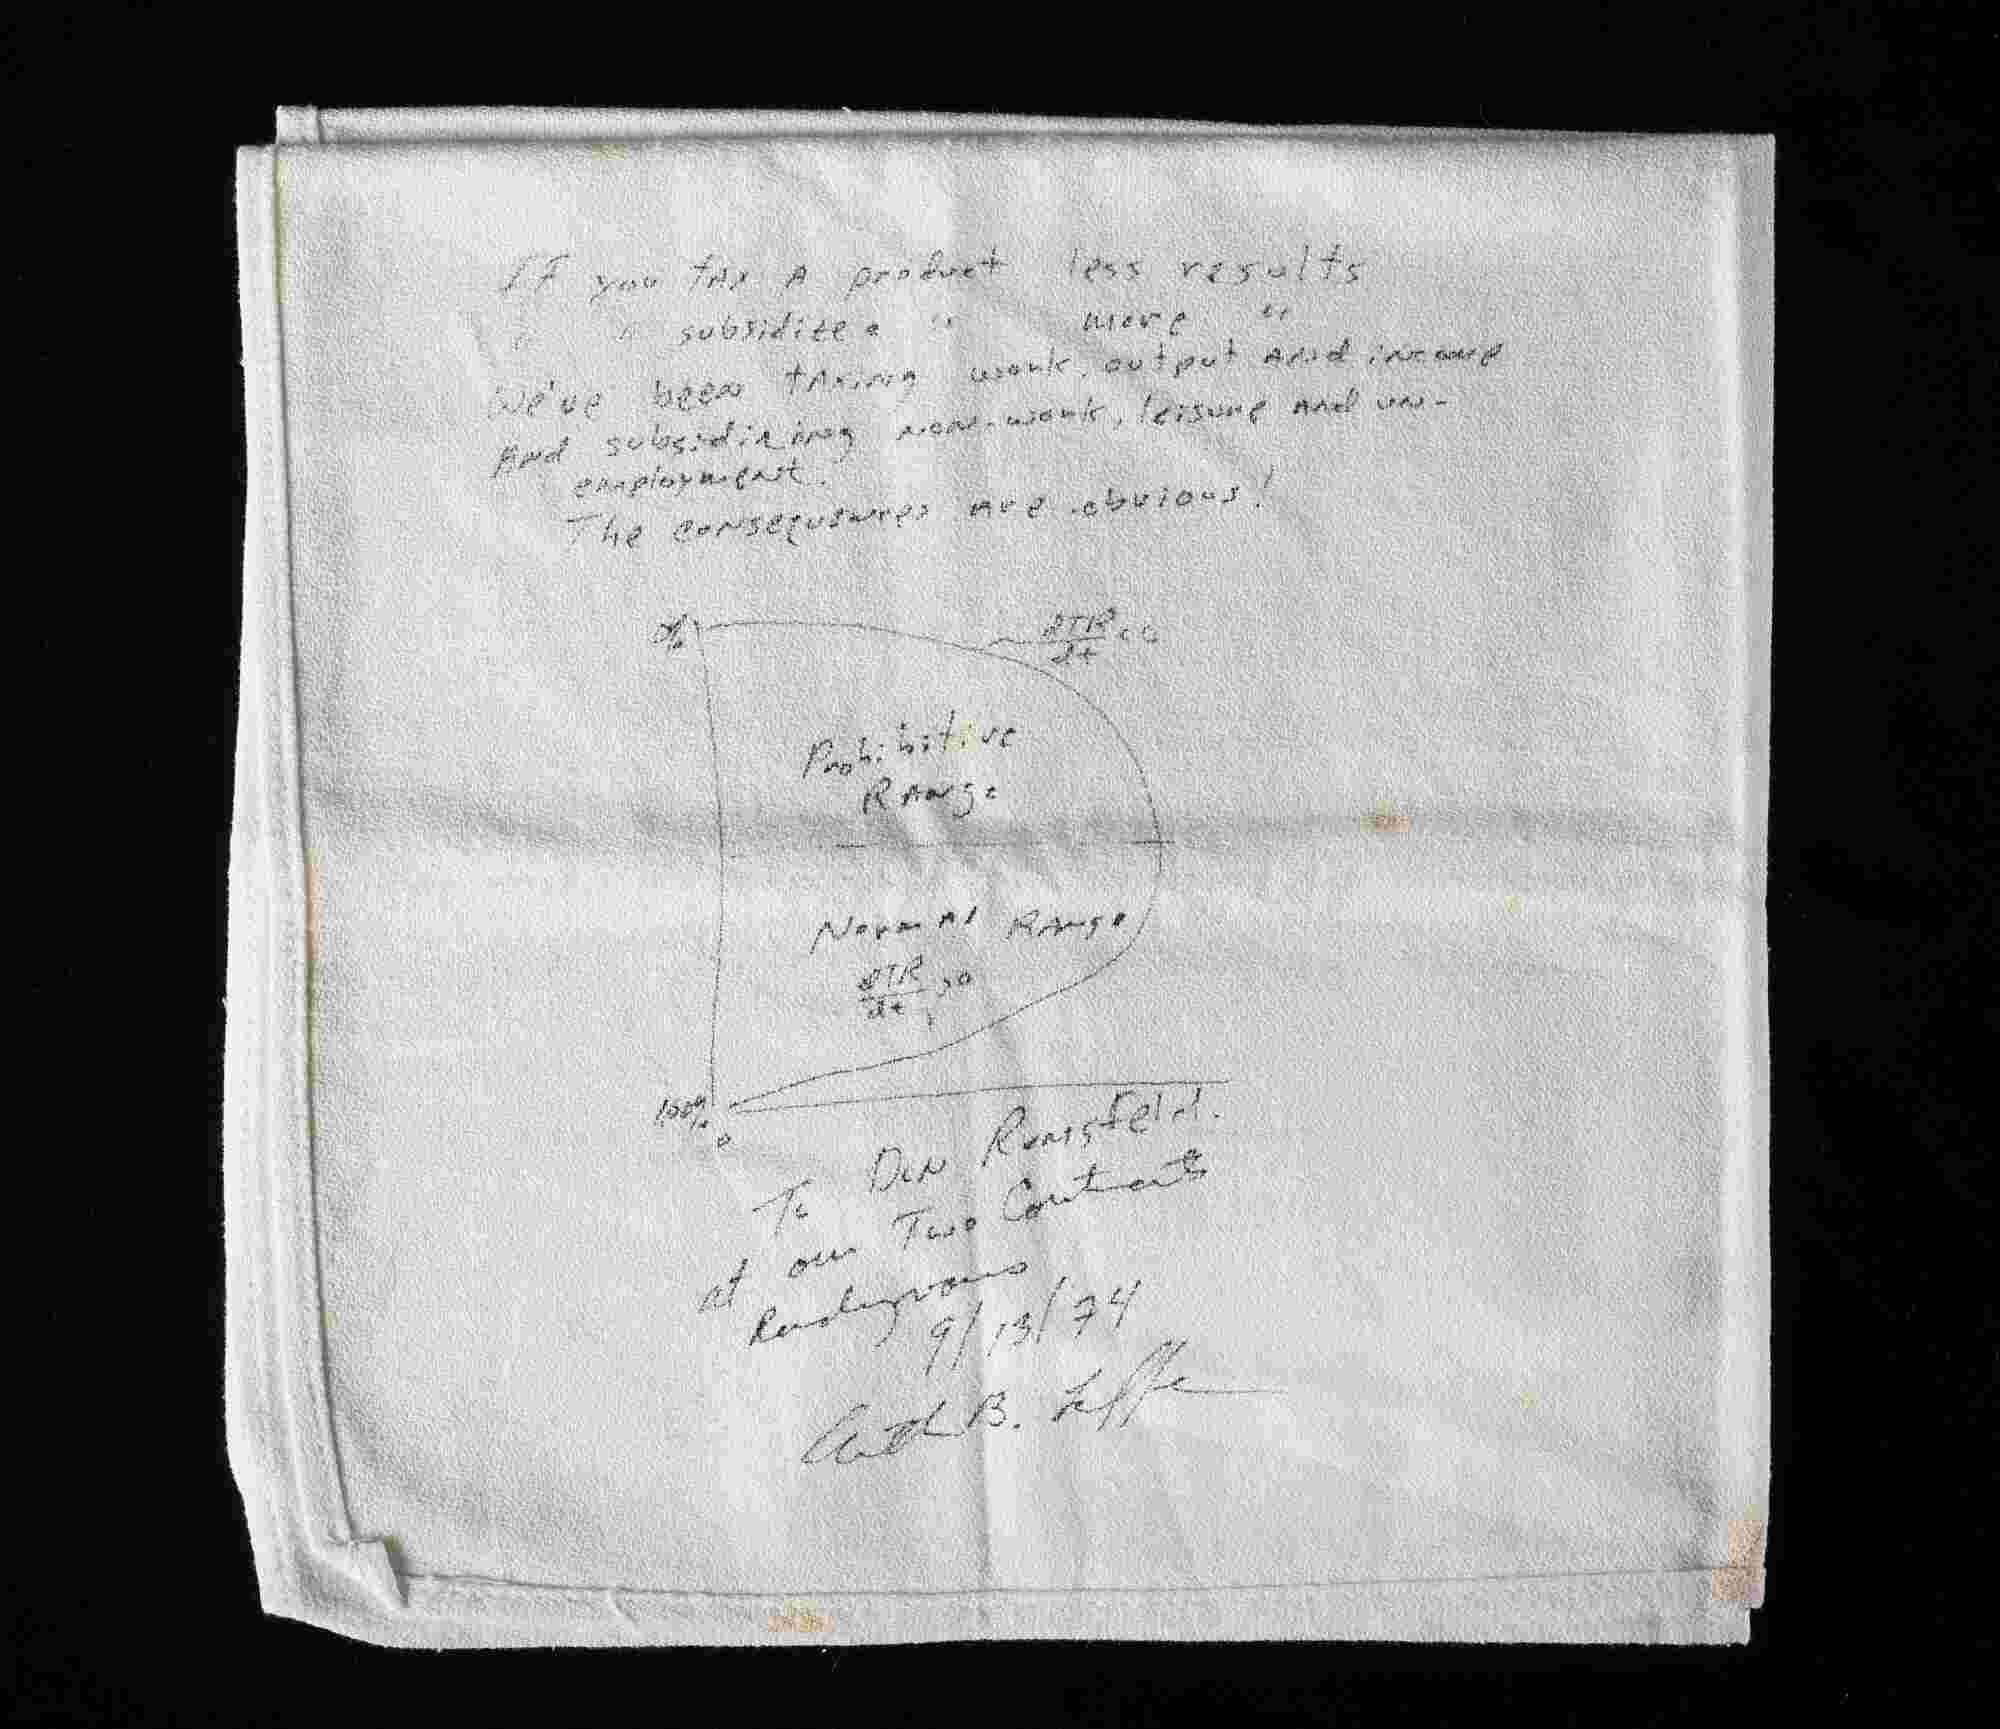 If you tax a product less results
" " subsidize a " more "
We've been taxing work, output and income
and subsidizing non-work, leisure and un-
employment.
The consequences are obvious!
dTR
dt
Prohibitive
Range
Normal Range
dTR
dt >0
100%
0
To Don Rumsfeld
at our Two Continents
Rendezvous
9/13/74
Arthur B. Laffer